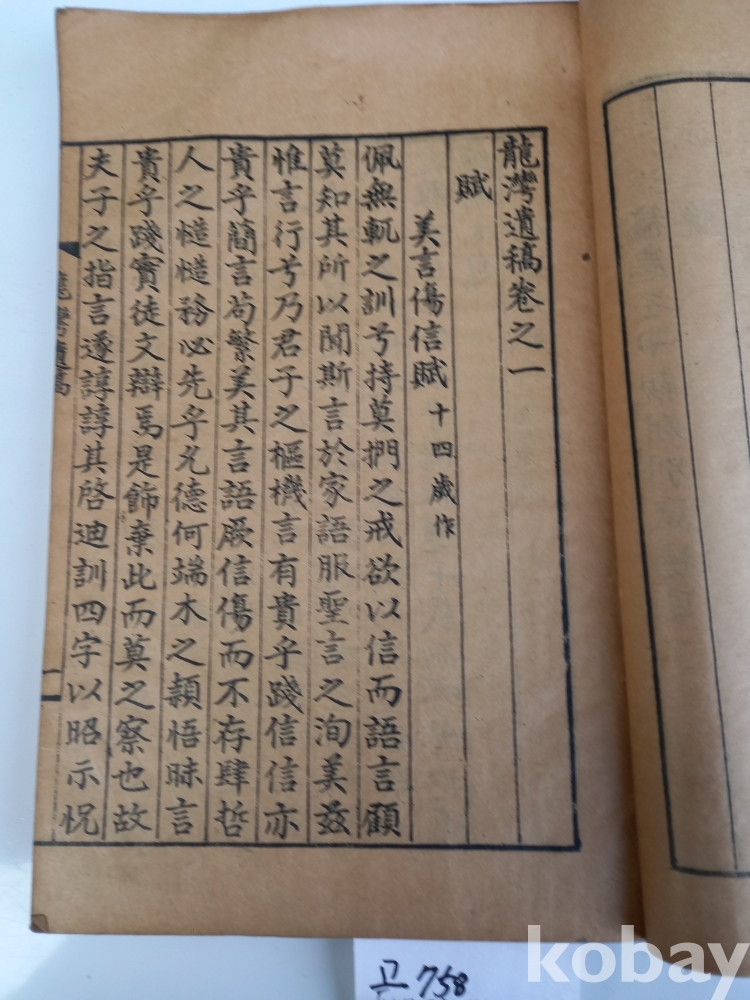 龍灣遺稿卷之一
賦
美言傷信賦 十四歲作
佩無軏之訓兮持莫捫之戒欲以信而語言顧
莫知其所以聞斯言於家語服聖言之洵美兹
惟言行兮乃君子之樞機言有貴乎踐信信亦
貴乎簡言苟繁美其言語厥信傷而不存肆哲
人之慥慥務必先乎允德何端木之穎悟昧言
貴乎踐實徒文辯焉是飾棄此而莫之察也故
夫子之指言遂諄諄其啓迪訓四字以昭示怳
龍灣遺稿
一
고 758
kobay